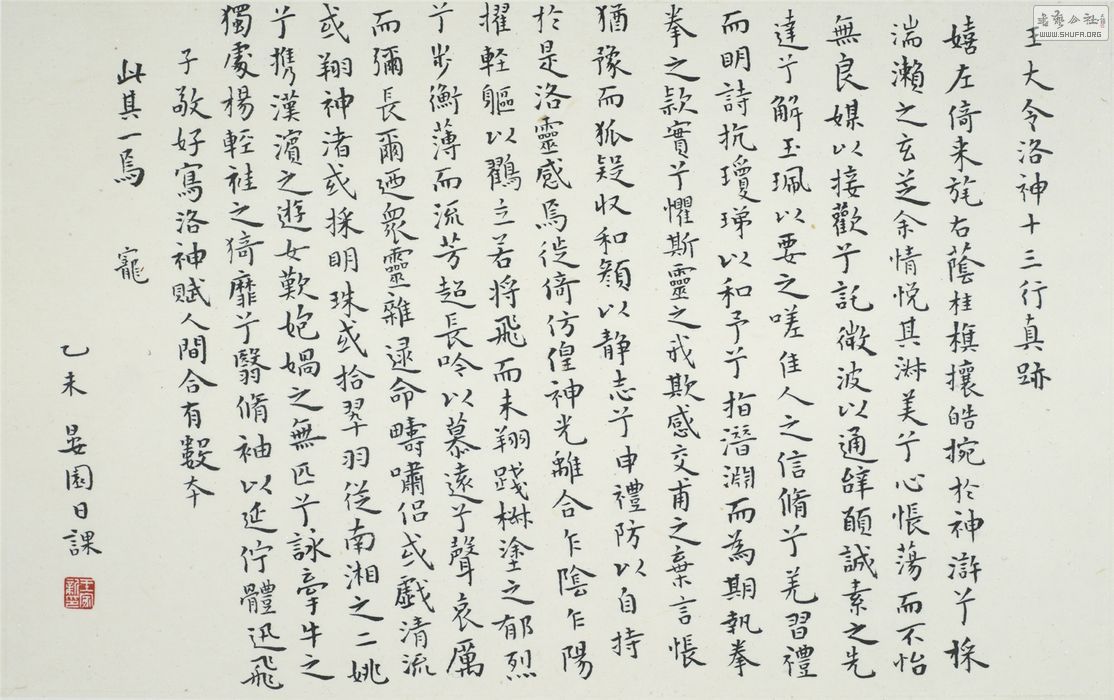 王大令洛神十三行真跡
嬉左倚来旄右蔭桂樔攘皓捥於神滸兮採
湍瀨之玄芝余情悦其淋美兮心悵蕩而不怡
無良媒以接歡兮託微波以通辭願誠素之先
達兮解玉珮以要之嗟佳人之信脩兮羌習禮
而明詩抗瓊珶以和予兮指潛淵而為期執拳
拳之款實兮懼斯靈之我欺感交甫之棄言悵
猶豫而狐疑収和顏以静志兮申禮防以自持
於是洛靈感焉徙倚仿偟神光離合乍陰乍陽
擢軽軀以鶴立若将飛而未翔踐椒塗之郁烈
兮步衡薄而流芳超長吟以慕遠兮聲哀厲
而彌長爾迺衆靈雜遝命疇嘯侶或戯清流
或翔神渚或採明珠或拾翠羽從南湘之二姚
兮携漢濱之遊女歎媉媧之無匹兮詠牽牛之
獨處楊軽袿之猗靡兮翳脩袖以延佇體迅飛
子敬好寫洛神賦人間合有數本
此其一焉 寵
乙未 晏園日課
書藝公社
www.SHUFA.ORG